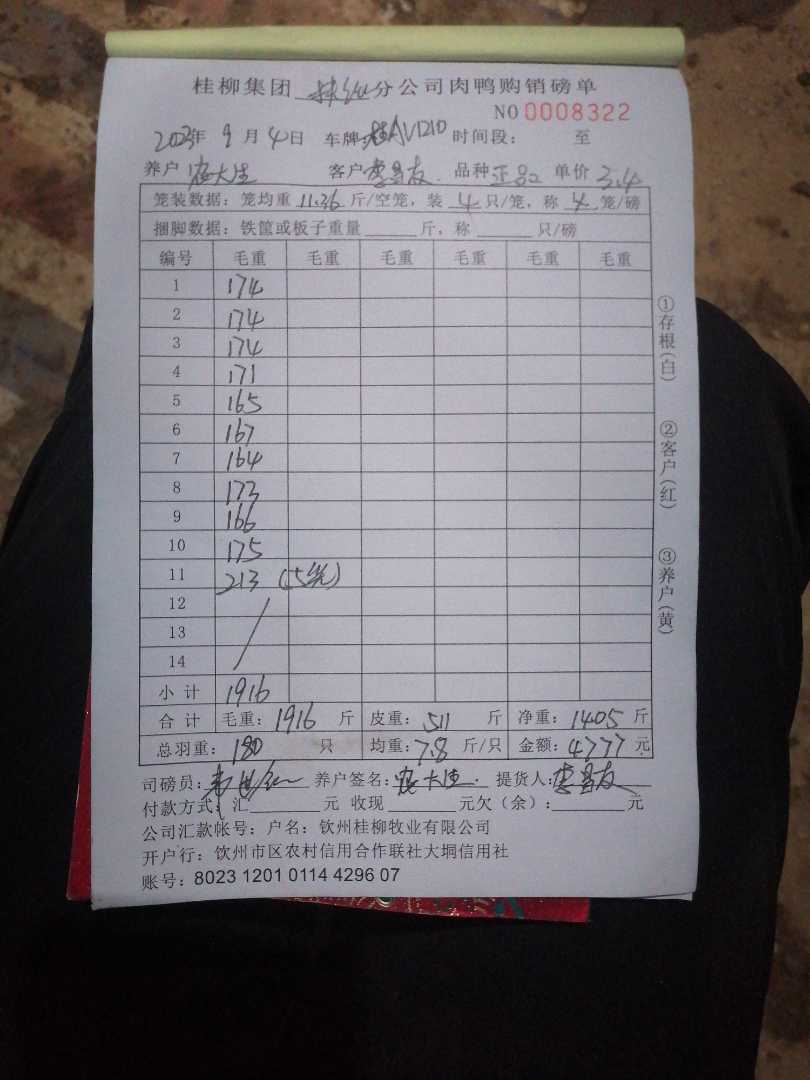 桂柳集团 扶绥 分公司肉鸭购销磅单
NO 0008322
2023年 9 月 4 日 车牌: 桂AV1210 时间段: 至
养户 大生 客户 李昌友 品种 正品 单价 3.4
笼装数据: 笼均重 11.36 斤/空笼, 装 4 只/笼, 称 4 笼/磅
捆脚数据: 铁筐或板子重量______斤, 称______只/磅
编号 毛重 毛重 毛重 毛重 毛重 毛重
1 174
2 174
3 174
4 171
5 165
6 167
7 164
8 173
9 166
10 175
11 213 (5笼)
12
13
14
小 计 1916
合 计 毛重: 1916 斤 皮重: 511 斤 净重: 1405 斤
总羽重: 180 只 均重: 7.8 斤/只 金额: 4777 元
司磅员: 养户签名: 大生 提货人: 李昌友
付款方式: 汇______元 收现______元欠(余):______元
公司汇款帐号: 户名: 钦州桂柳牧业有限公司
开户行: 钦州市区农村信用合作联社大垌信用社
账号: 8023 1201 0114 4296 07
①存根(白) ②客户(红) ③养户(黄)